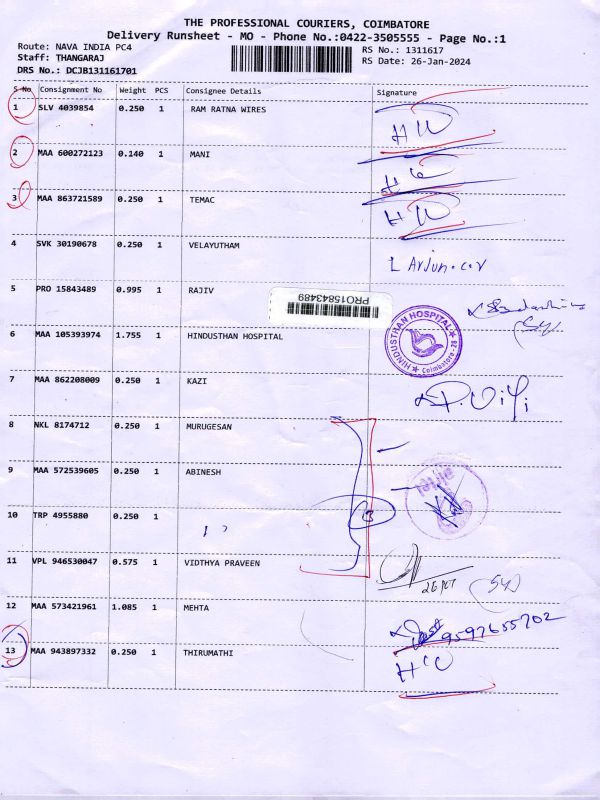 THE PROFESSIONAL COURIERS, COIMBATORE
Delivery Runsheet - MO - Phone No.:0422-3505555 - Page No.:1
Route: NAVA INDIA PC4
RS No.: 1311617
Staff: THANGARAJ
RS Date: 26-Jan-2024
DRS No.: DCJB131161701
S No Consignment No Weight PCS Consignee Details Signature
1 SLV 4039854 0.250 1 RAM RATNA WIRES
2 MAA 600272123 0.140 1 MANI
3 MAA 863721589 0.250 1 TEMAC
4 SVK 30190678 0.250 1 VELAYUTHAM
5 PRO 15843489 0.995 1 RAJIV
PRO15843489
6 MAA 105393974 1.755 1 HINDUSTHAN HOSPITAL
HINDUSTHAN HOSPITAL
Coimbatore - 28
7 MAA 862208009 0.250 1 KAZI
8 NKL 8174712 0.250 1 MURUGESAN
9 MAA 572539605 0.250 1 ABINESH
10 TRP 4955880 0.250 1
11 VPL 946530047 0.575 1 VIDTHYA PRAVEEN
12 MAA 573421961 1.085 1 MEHTA
9597655702
13 MAA 943897332 0.250 1 THIRUMATHI